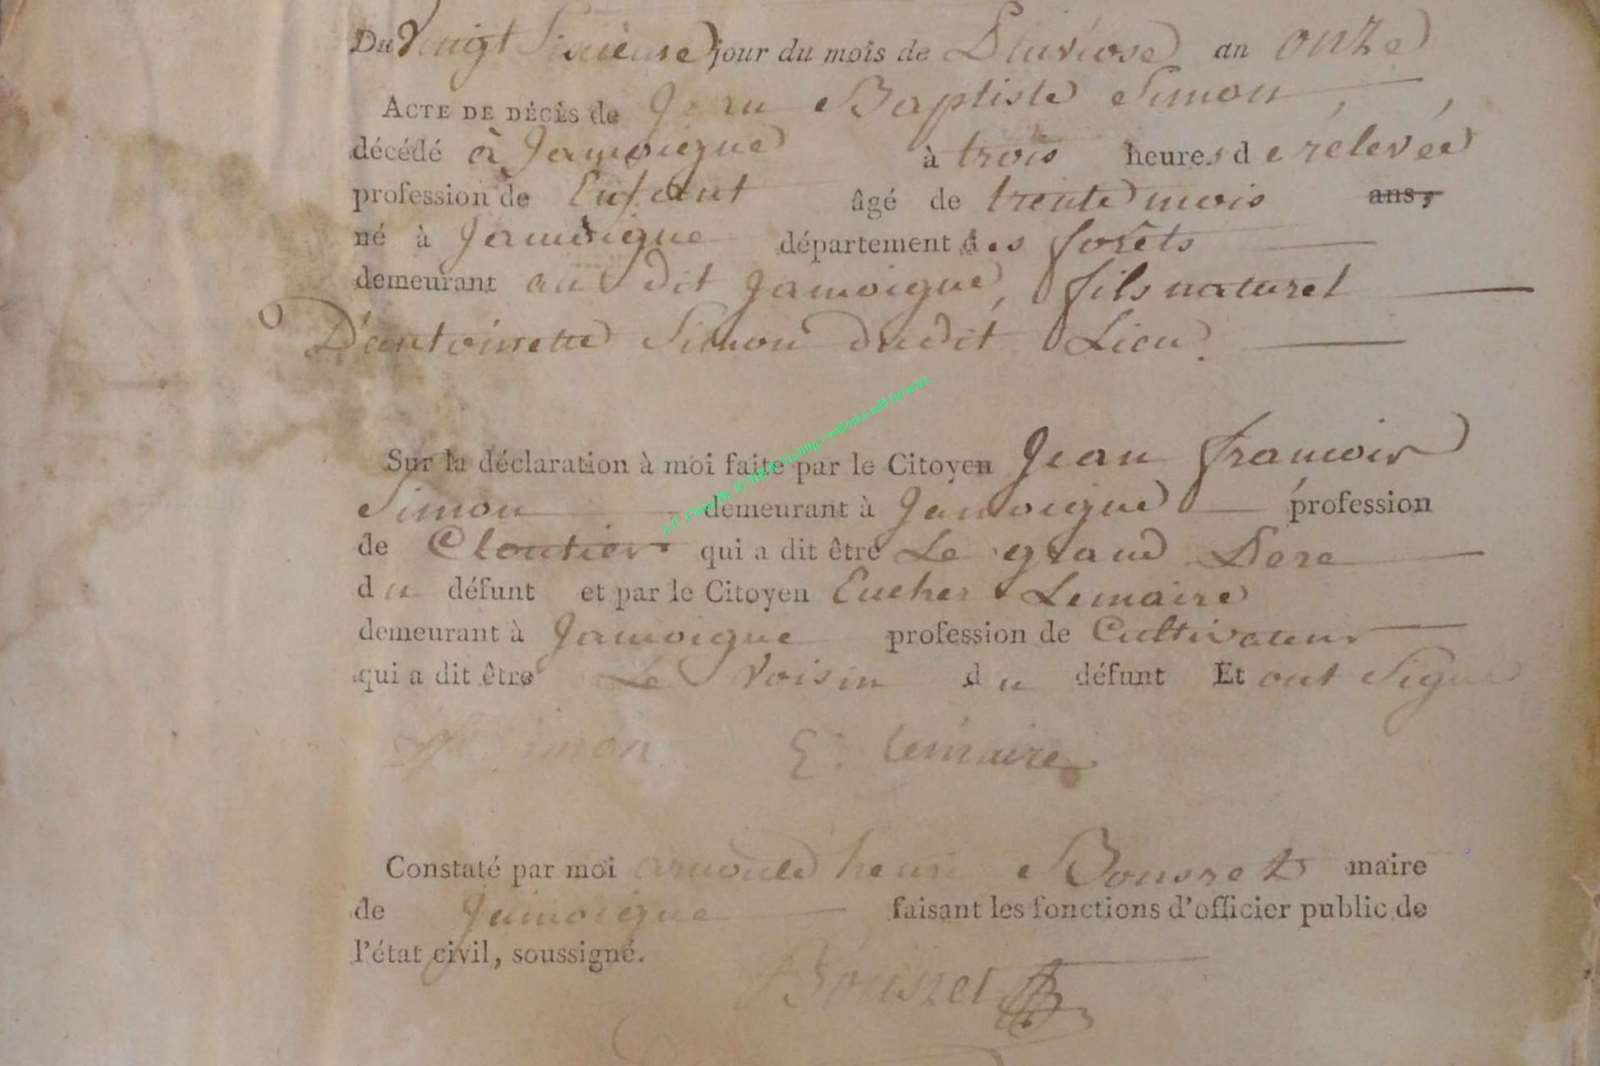 Du Vingt Sixieme jour du mois de Pluviose an onze
ACTE DE DÉCÈS de Jean Baptiste Simon,
décédé à Jamoigne à trois heures de rélevée
profession de Enfant âgé de trente mois ans,
né à Jamoigne département des forêts
demeurant au dit Jamoigne, fils naturel
D'antoinette Simon dudit Lieu.
Sur la déclaration à moi faite par le Citoyen Jean françois
Simon demeurant à Jamoigne profession
de Cloutier qui a dit être Le grand Pere
du défunt et par le Citoyen Eucher Lemaire
demeurant à Jamoigne profession de Cultivateur
qui a dit être Le Voisin du défunt Et ont Signé
Simon E: lemaire
Constaté par moi arnould henri Bousret maire
de Jamoigne faisant les fonctions d'officier public de
l'état civil, soussigné.
Bousret